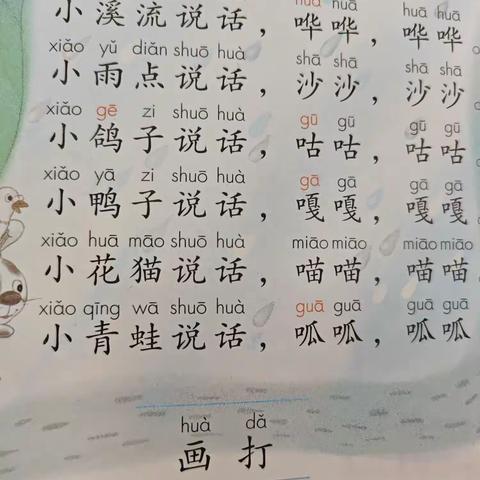 huā huā huā
小溪流说话，哗哗，哗哗
xiǎo yǔ diǎn shuō huà shā shā shā shā
小雨点说话，沙沙，沙沙
xiǎo gē zi shuō huà gū gū gū gū
小鸽子说话，咕咕，咕咕
xiǎo yā zi shuō huà gā gā gā gā
小鸭子说话，嘎嘎，嘎嘎
xiǎo huā māo shuō huà miāo miāo miāo miāo
小花猫说话，喵喵，喵喵
xiǎo qīng wā shuō huà guā guā guā guā
小青蛙说话，呱呱，呱呱
huà dǎ
画 打